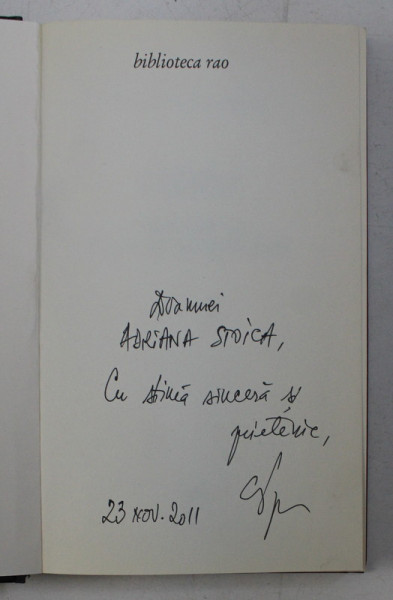 biblioteca rao
Doamnei
ADRIANA STOICA,
Cu stimă sinceră și
prietenie,
23 NOV. 2011